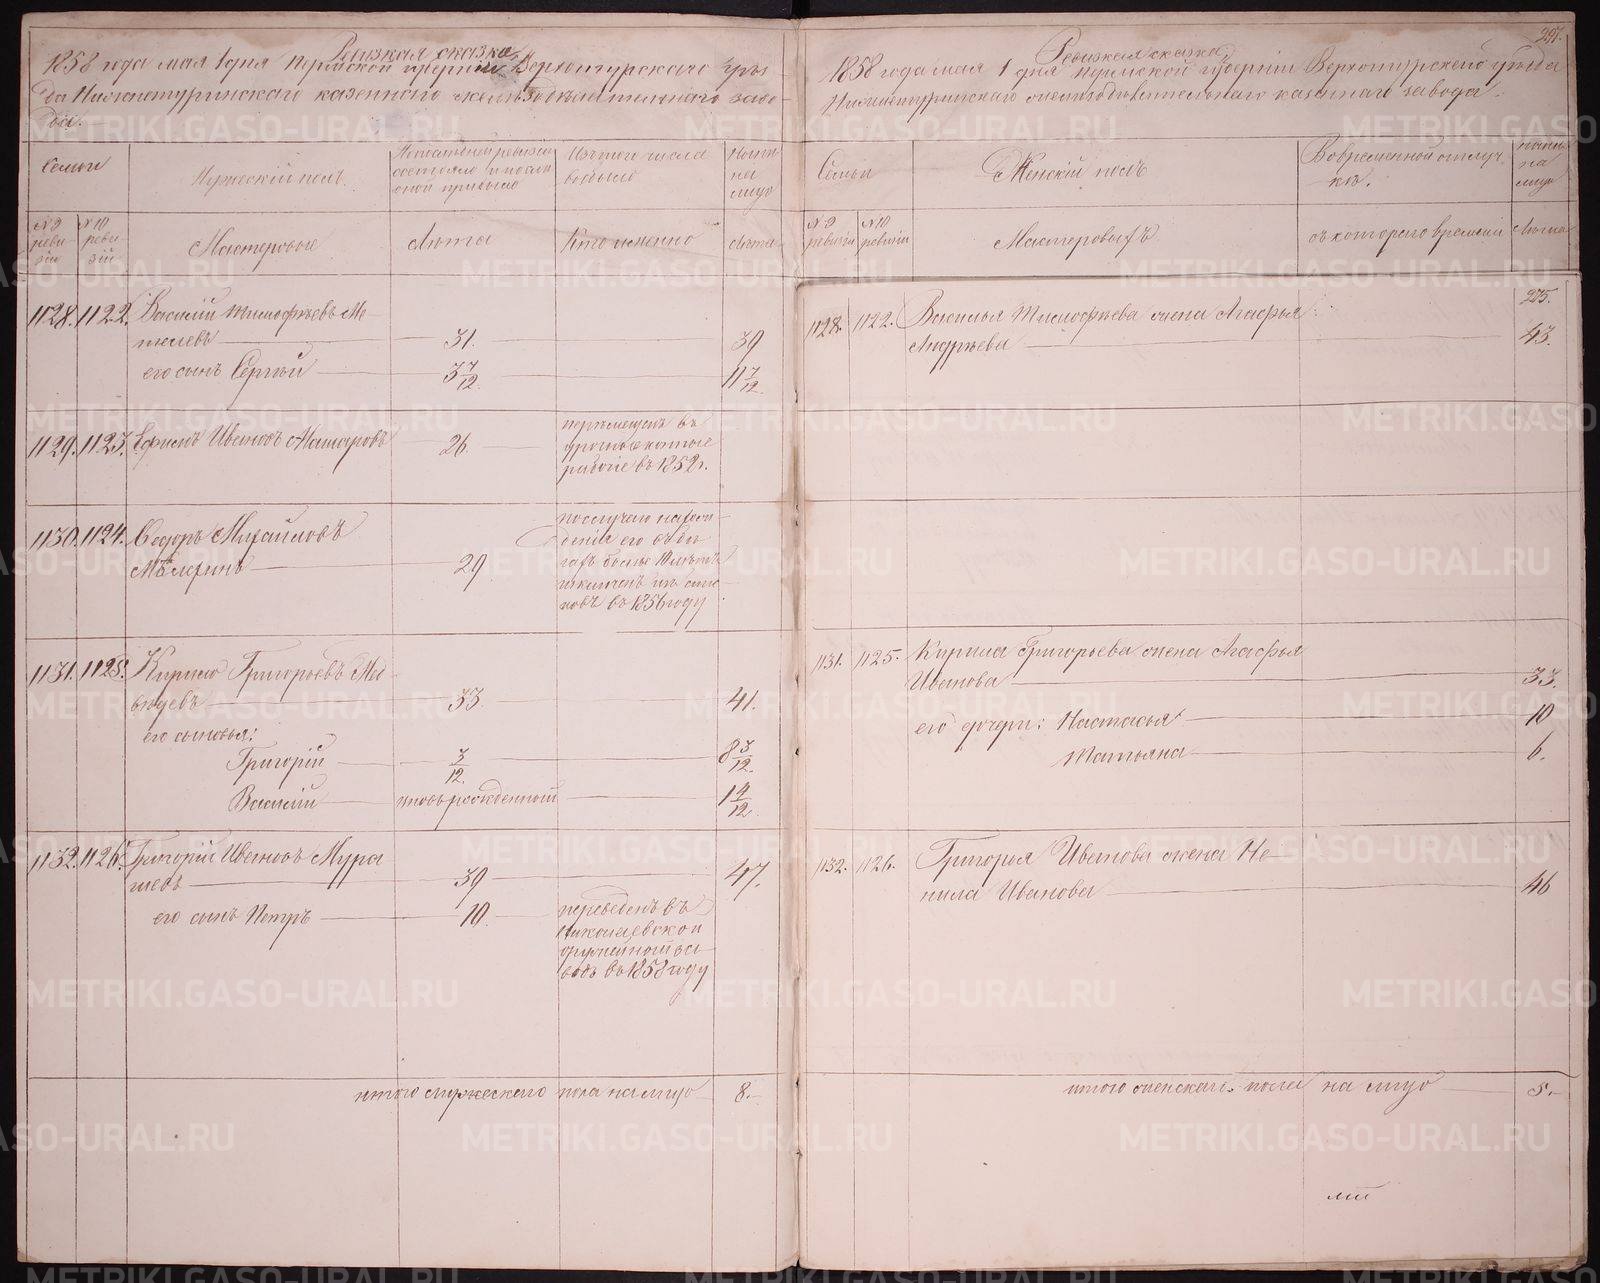 Ревизкая сказка
1858 года мая 1 дня Пермской губернии Верхотурского уѣз
да Нижнетуринского казенного желѣзодѣлательного заво-
да.
Семьи
Мужескій полъ.
По послѣдней ревизіи
состояло и после
оной прибыло
Изъ того числа
выбыло
Ныни
на
лицо
№ 9
реви-
зіи
№ 10
реви-
зіи
Мастеровые
Лѣта
Кто именно
Лѣта
1128. 1122. Василій Тимофѣевъ Ме-
телевъ 31. 39
его сынъ Сергѣй 3 7/12. 11 7/12
1129. 1123. Ефимъ Ивановъ Макаровъ 26
перемещенъ въ
урочные конные
рабочіе въ 1852 г.
1130. 1124. Федоръ Михайловъ
Мѣлеринъ 29
по случаю нахож-
денія его въ бѣ
гахъ более лѣтъ
изключенъ изъ спис-
ковъ въ 1856 году
1131. 1125. Кирило Григорьевъ Мя-
вкуевъ 33 41.
его сыновья:
Григорій 3/12. 8 3/12.
Василій вновь рожденный 1 4/12
1132. 1126. Григорій Ивановъ Мура
шевъ 39 47.
его сынъ Петръ 10
переведенъ въ
Николаевской
оружейной за-
водъ въ 1858 году
итого мужескаго пола на лицо 8.-
297.
Ревизкая сказка
1858 года мая 1 дня Пермской губерніи Верхотурского уѣзда
Нижнетуринского желѣзодѣлательного казеннаго завода.
Семьи
Женскій полъ
Во временной отлуч
кѣ.
Ныни
на
лицо
№ 9
ревизіи
№ 10
ревизіи
Мастеровыхъ
съ которого времени
Лѣта
275.
1128. 1122. Василья Тимофѣева жена Агафья
Андрѣева 43.
1131. 1125. Кирила Григорьева жена Агафья
Иванова 33.
его дочери: Настасья 10
Татьяна 6.
1132. 1126. Григорья Иванова жена Не-
нила Иванова 46
итого женскаго пола на лицо 5.-
METRIKI.GASO-URAL.RU